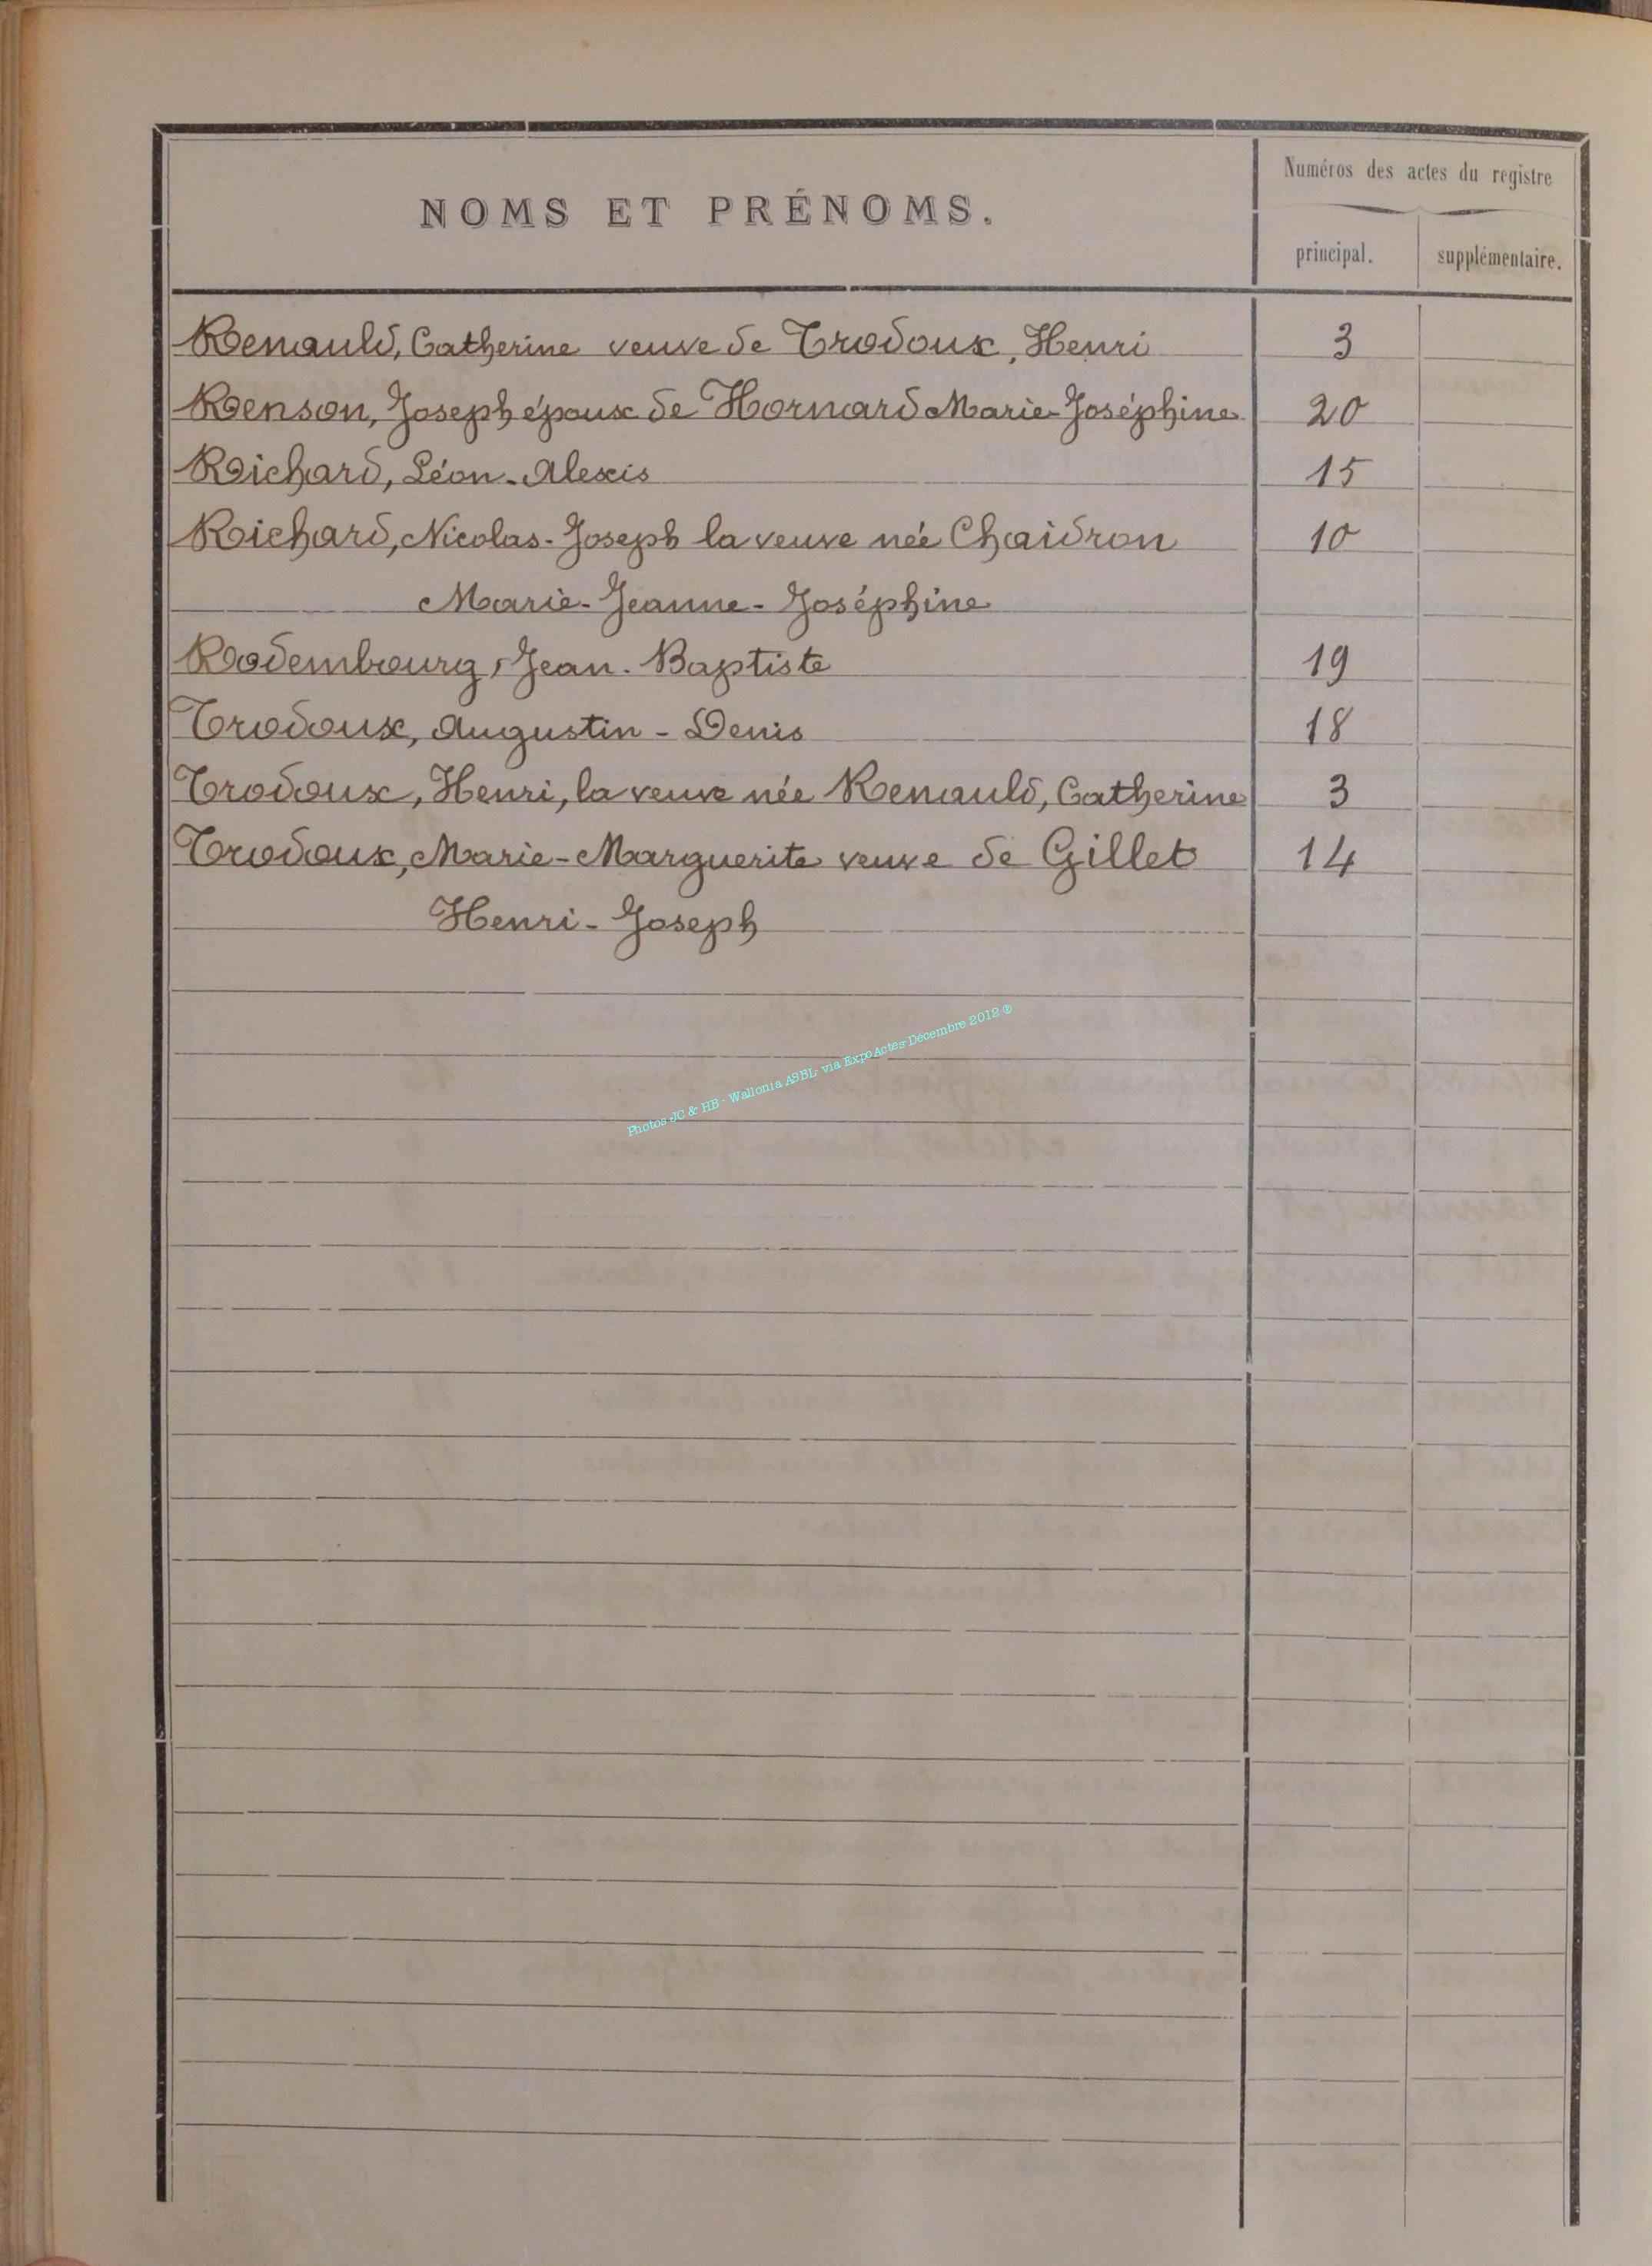 NOMS ET PRÉNOMS.
Numéros des actes du registre
principal.
supplémentaire.
Renauld, Catherine veuve de Trodoux, Henri 3
Renson, Joseph époux de Hornard Marie-Joséphine 20
Richard, Léon-Alexis 15
Richard, Nicolas-Joseph la veuve née Chaidron 10
Marie-Jeanne-Joséphine
Rodembourg, Jean-Baptiste 19
Trodoux, Augustin-Denis 18
Trodoux, Henri, la veuve née Renauld, Catherine 3
Trodoux, Marie-Marguerite veuve de Gillet 14
Henri-Joseph
Photos JC & HB - Wallonia ASBL via ExpoActes Décembre 2012 ®